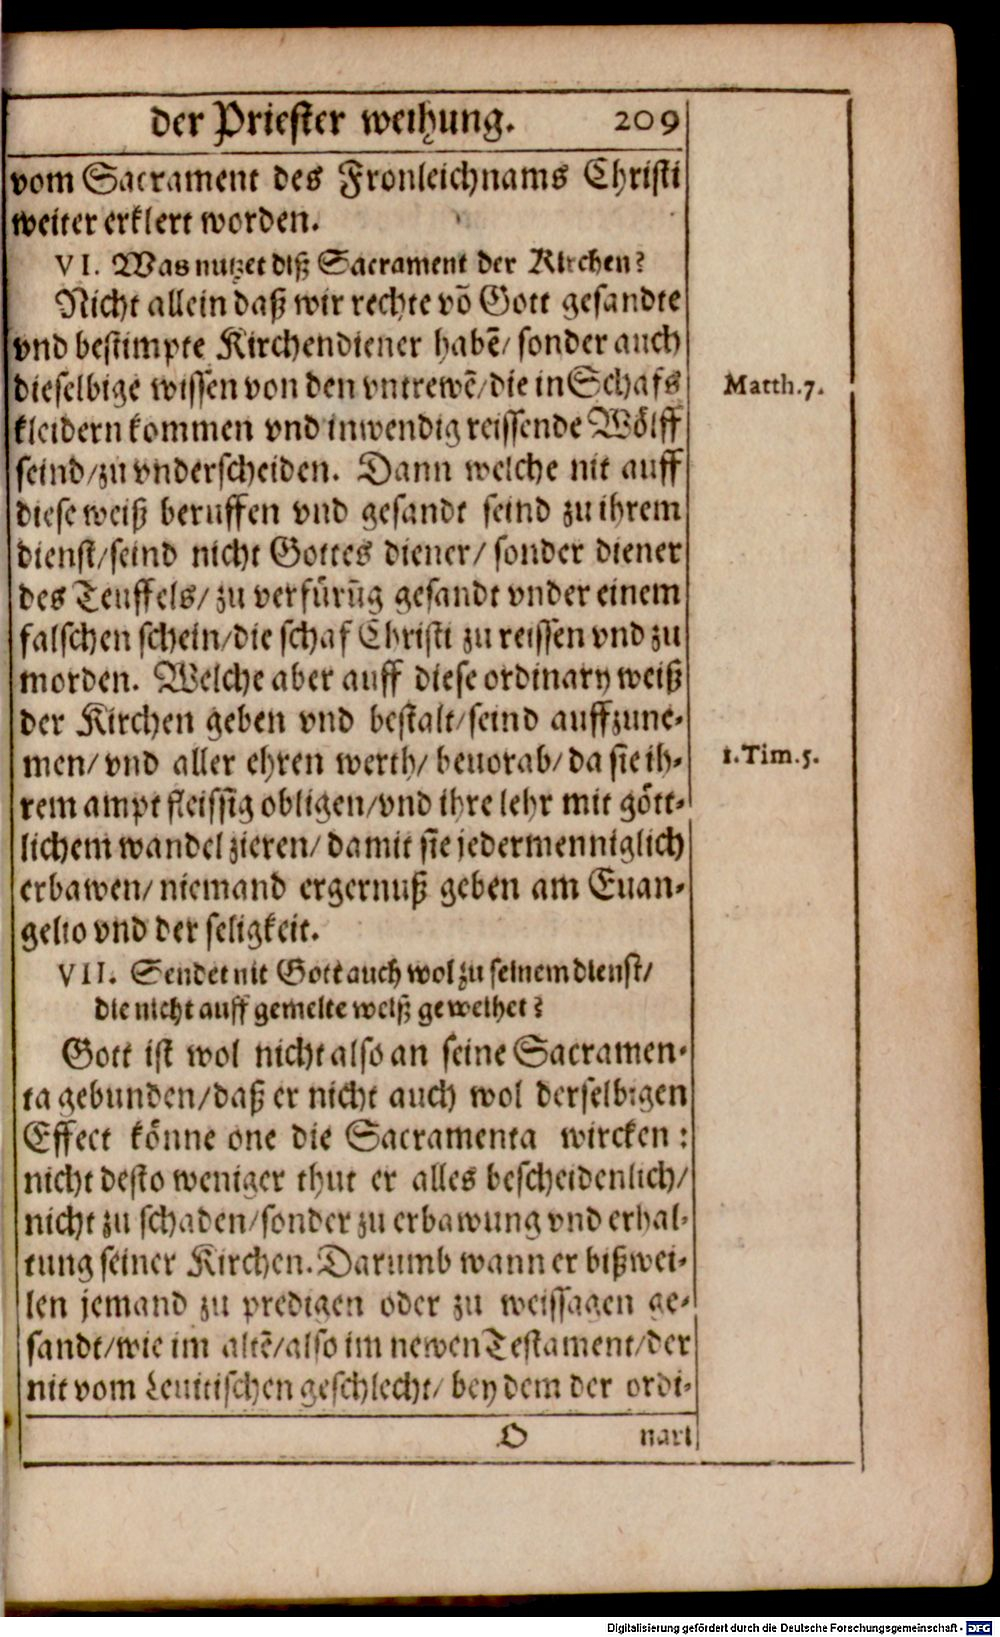 der Priester weihung. 209
vom Sacrament des Fronleichnams Christi
weiter erklert worden.
VI. Was nutzet diß Sacrament der Kirchen?
Nicht allein daß wir rechte võ Gott gesandte
vnd bestimpte Kirchendiener habẽ/ sonder auch
dieselbige wissen von den vntrewẽ/die in Schafs
Matth.7.
kleidern kommen vnd inwendig reissende Wölff
seind/zu vnderscheiden. Dann welche nit auff
diese weiß beruffen vnd gesandt seind zu ihrem
dienst/seind nicht Gottes diener/ sonder diener
des Teuffels/ zu verfürũg gesandt vnder einem
falschen schein/die schaf Christi zu reissen vnd zu
morden. Welche aber auff diese ordinary weiß
der Kirchen geben vnd bestalt/seind auffzune-
men/ vnd aller ehren werth/ beuorab/ da sie ih-
1.Tim.5.
rem ampt fleissig obligen/vnd ihre lehr mit gött-
lichem wandel zieren/ damit sie jedermenniglich
erbawen/ niemand ergernuß geben am Euan-
gelio vnd der seligkeit.
VII. Sendet nit Gott auch wol zu seinem dienst/
die nicht auff gemelte weiß geweihet?
Gott ist wol nicht also an seine Sacramen-
ta gebunden/daß er nicht auch wol derselbigen
Effect könne one die Sacramenta wircken:
nicht desto weniger thut er alles bescheidenlich/
nicht zu schaden/sonder zu erbawung vnd erhal-
tung seiner Kirchen. Darumb wann er bißwei-
len jemand zu predigen oder zu weissagen ge-
sandt/wie im altẽ/also im newen Testament/der
nit vom Leuitischen geschlecht/ bey dem der ordi-
O nari
Digitalisierung gefördert durch die Deutsche Forschungsgemeinschaft - DFG